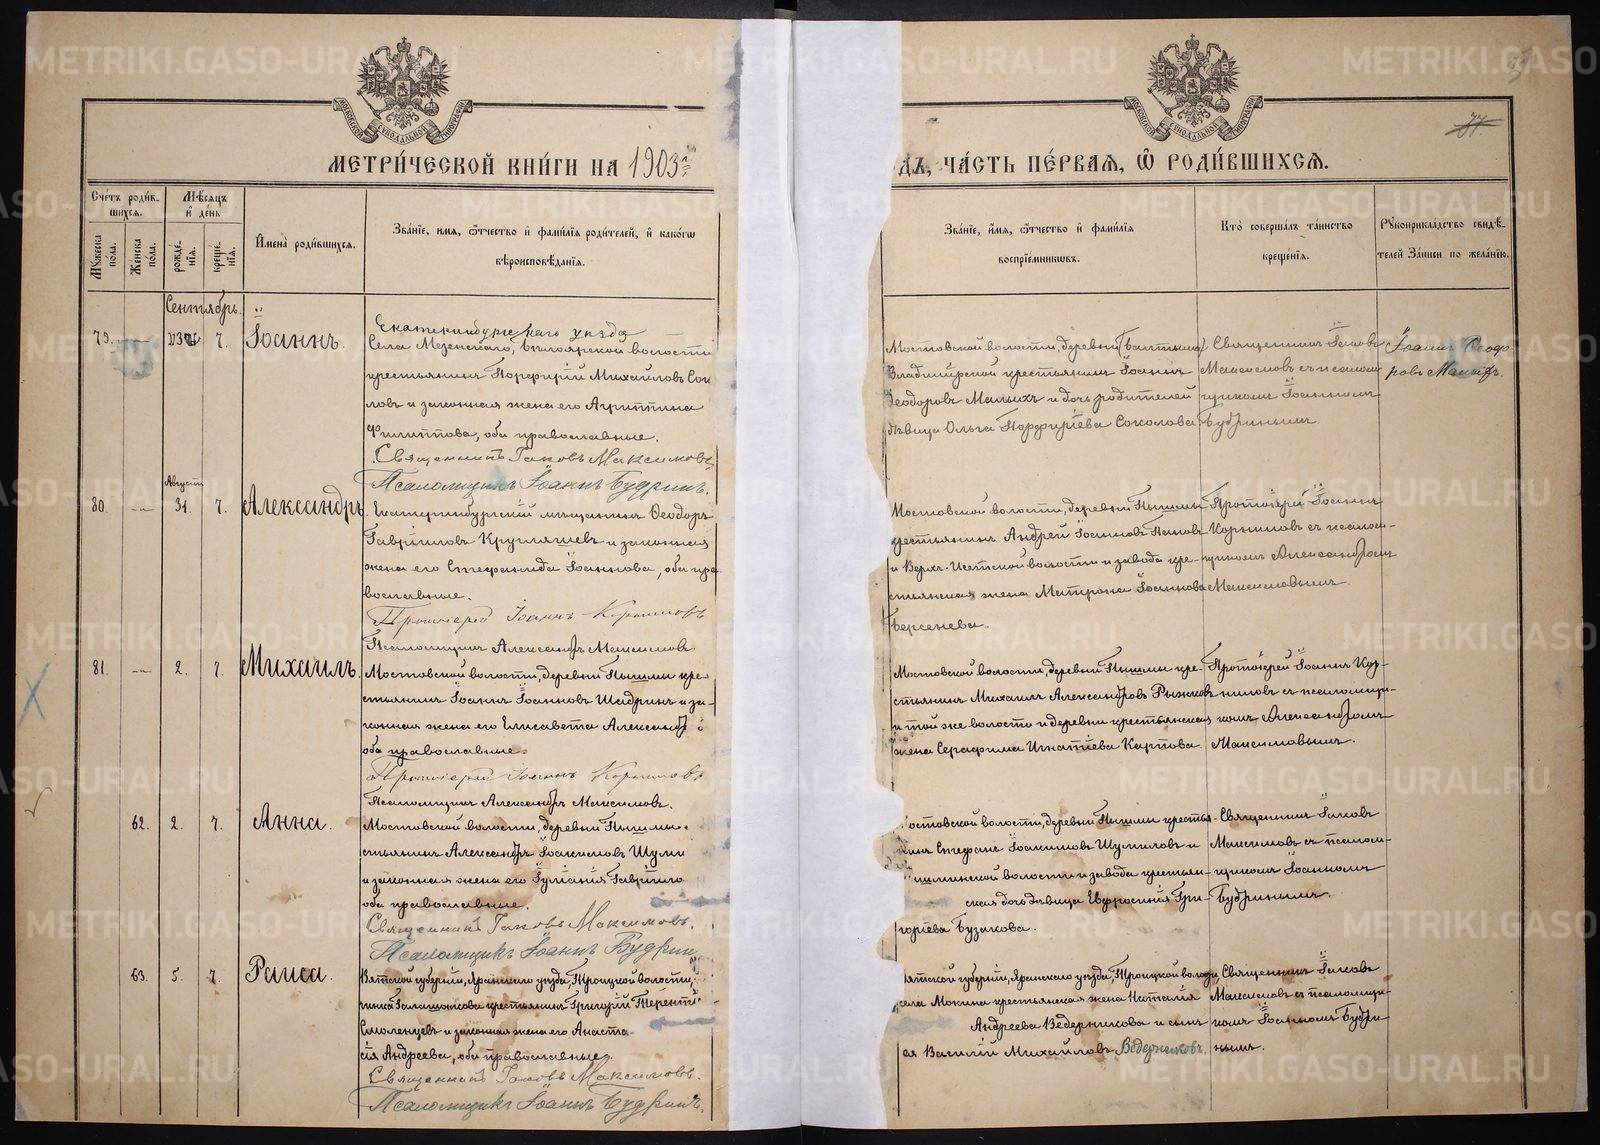 METRIKI.GASO-URAL.RU
МЕТРИ́ЧЕСКОЙ КНИ́ГИ НА 1903й
ДЪ, ЧА́СТЬ ПЕ́РВАѦ, Ѡ РОДИ́ВШИХСѦ.
37.
Сче́тъ роди́в-
шихся.
Мѣ́сяцъ
и́ де́нь
Му́жеска по́ла.
Же́нска по́ла.
рожде́нїя.
креще́нїя.
И́мена̀ роди́вшихся.
Зва́нїе, и́мя, ѻ́тчество и́ фами́лїя роди́телей, и́ како́гѡ
вѣроисповѣ́данїя.
Зва́нїе, и́мя, ѻ́тчество и́ фами́лїя
воспрїе́мниковъ.
Кто̀ соверша́лъ та́инство
креще́нїя.
Рꙋкоприкла́дство свидѣ́-
телей за́писи по жела́нїю.
Сентябрь.
79. — 7. Іоаннъ.
Екатеринбургскаго уѣзда
Села Мезенскаго, Бѣлоярской волости
крестьянинъ Порфирій Михайловъ Соко
ловъ и законная жена его Агриппина
Филиппова, оба православные.
Священникъ Іаковъ Максимовъ
Псаломщикъ Іоаннъ Будринъ.
Мостовской волости, деревни
Владимірской крестьянинъ Іоаннъ
Ѳеодоровъ Малыхъ и дочь родителей
дѣвица Ольга Порфиріева Соколова.
Священникъ Іаковъ
Максимовъ съ псалом-
щикомъ Іоанномъ
Будринымъ.
Іоаннъ Ѳеодо
ровъ Малыхъ.
Августъ
80. — 31. 7. Александръ.
Екатеринбургскій мѣщанинъ Ѳеодоръ
Гавріиловъ Кругляшевъ и законная
жена его Стефанида Іоаннова, оба пра
вославные.
Протоіерей Іоаннъ Корниловъ
Псаломщикъ Александръ Максимовъ
Мостовской волости, деревни Пышмы
крестьянинъ Андрей Іоанновъ Поповъ
и Верхъ-Исетской волости и завода кре-
стьянская жена Матрона Іоаннова
Берсенева.
Протоіерей Іоаннъ
Корниловъ съ псалом-
щикомъ Александромъ
Максимовымъ.
81. — 2. 7. Михаилъ.
Мостовской волости, деревни Пышмы кре-
стьянинъ Іоаннъ Іоанновъ Шадринъ и за-
конная жена его Елисавета Александр
оба православные.
Протоіерей Іоаннъ Корниловъ
Псаломщикъ Александръ Максимовъ.
Мостовской волости, деревни Пышмы кре-
стьянинъ Михаилъ Александровъ Рыжковъ
и той же волости и деревни крестьянская
жена Серафима Игнатіева Карпова.
Протоіерей Іоаннъ Кор-
ниловъ съ псаломщи-
комъ Александромъ
Максимовымъ.
62. 2. 7. Анна.
Мостовской волости, деревни Пышмы
стьянинъ Александръ Іоакимовъ Шуми
и законная жена его Іуліанія Гавріило
оба православные.
Священникъ Іаковъ Максимовъ.
Псаломщикъ Іоаннъ Будрин
остовской волости, деревни Пышмы крестья-
нинъ Стефанъ Іоакимовъ Шумиловъ и
ышминской волости и завода крестьян-
ская дочь дѣвица Евфросинія Гри-
горіева Бузакова.
Священникъ Іаковъ
Максимовъ съ псалом-
щикомъ Іоанномъ
Будринымъ.
63. 5. 7. Раиса.
Вятской губерніи, Яранскаго уѣзда, Троицкой волости,
крестьянинъ Григорій Теренті
Смоленцевъ и законная жена его Анаста-
сія Андреева, оба православные.
Священникъ Іаковъ Максимовъ.
Псаломщикъ Іоаннъ Будринъ.
ятской губерніи, Яранскаго уѣзда, Троицкой волости,
села Мокина крестьянская жена Наталія
Андреева Ведерникова и сынъ
ея Василій Михайловъ Ведерниковъ.
Священникъ Іаковъ
Максимовъ съ псаломщи-
комъ Іоанномъ Будри-
нымъ.